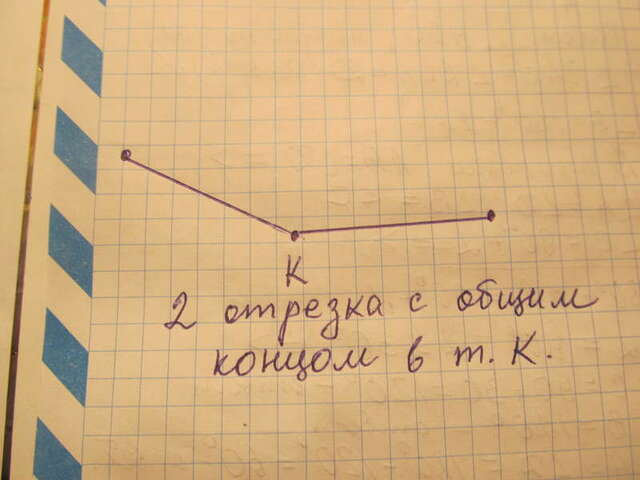 К
2 отрезка с общим
концом в т. К.